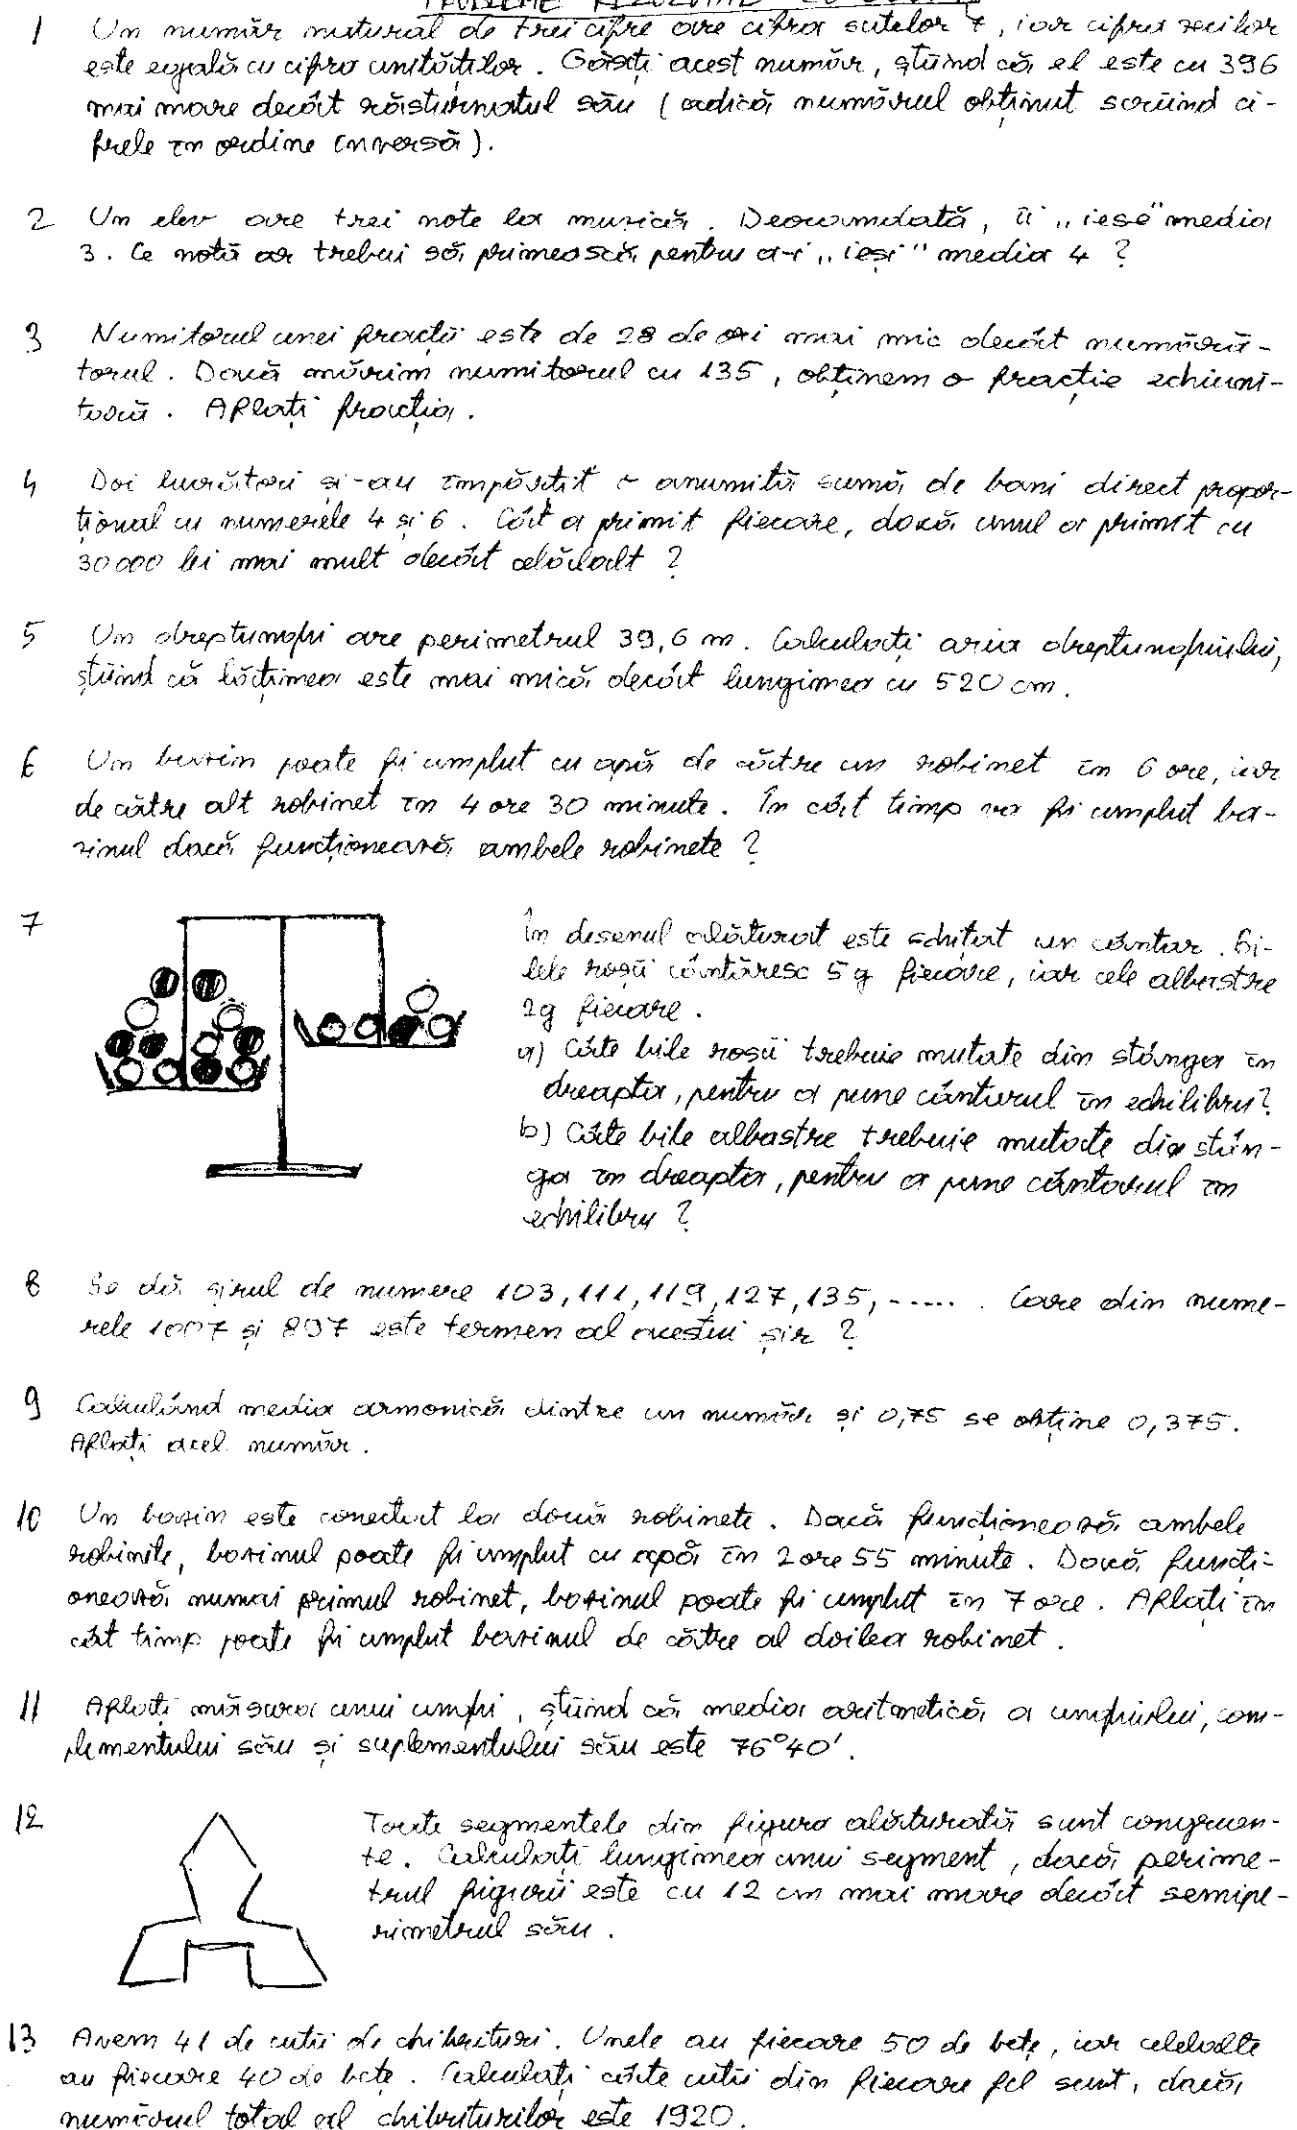 PROBLEME REZOLVATE CU
1 Un număr natural de trei cifre are cifra sutelor 7, iar cifra zecilor
este egală cu cifra unităților. Găsiți acest număr, știind că el este cu 396
mai mare decât răsturnatul său (adică numărul obținut scriind ci-
frele în ordine inversă).
2 Un elev are trei note la muzică. Deocamdată, îi „iese" media
3. Ce notă ar trebui să primească pentru a-i „ieși" media 4 ?
3 Numitorul unei fracții este de 28 de ori mai mic decât numără-
torul. Dacă mărim numitorul cu 135, obținem o fracție echiuni-
tară. Aflați fracția.
4 Doi lucrători și-au împărțit o anumită sumă de bani direct propor-
țional cu numerele 4 și 6. Cât a primit fiecare, dacă unul a primit cu
30000 lei mai mult decât celălalt ?
5 Un dreptunghi are perimetrul 39,6 m. Calculați aria dreptunghiului,
știind că lățimea este mai mică decât lungimea cu 520 cm.
6 Un bazin poate fi umplut cu apă de către un robinet în 6 ore, iar
de către alt robinet în 4 ore 30 minute. În cât timp va fi umplut ba-
zinul dacă funcționează ambele robinete ?
7 În desenul alăturat este schițat un cântar. Bi-
lele roșii cântăresc 5g fiecare, iar cele albastre
2g fiecare.
a) Câte bile roșii trebuie mutate din stânga în
dreapta, pentru a pune cântarul în echilibru?
b) Câte bile albastre trebuie mutate din stân-
ga în dreapta, pentru a pune cântarul în
echilibru ?
8 Se dă șirul de numere 103, 111, 119, 127, 135, ...... Care din nume-
rele 1007 și 897 este termen al acestui șir ?
9 Calculând media armonică dintre un număr și 0,75 se obține 0,375.
Aflați acel număr.
10 Un bazin este conectat la două robinete. Dacă funcționează ambele
robinete, bazinul poate fi umplut cu apă în 2 ore 55 minute. Dacă funcți-
onează numai primul robinet, bazinul poate fi umplut în 7 ore. Aflați în
cât timp poate fi umplut bazinul de către al doilea robinet.
11 Aflați măsura unui unghi, știind că media aritmetică a unghiului, com-
plementului său și suplementului său este 76°40'.
12 Toate segmentele din figura alăturată sunt congruen-
te. Calculați lungimea unui segment, dacă perime-
trul figurii este cu 12 cm mai mare decât semipe-
rimetrul său.
13 Avem 41 de cutii de chibrituri. Unele au fiecare 50 de bețe, iar celelalte
au fiecare 40 de bețe. Calculați câte cutii din fiecare fel sunt, dacă,
numărul total al chibriturilor este 1920.